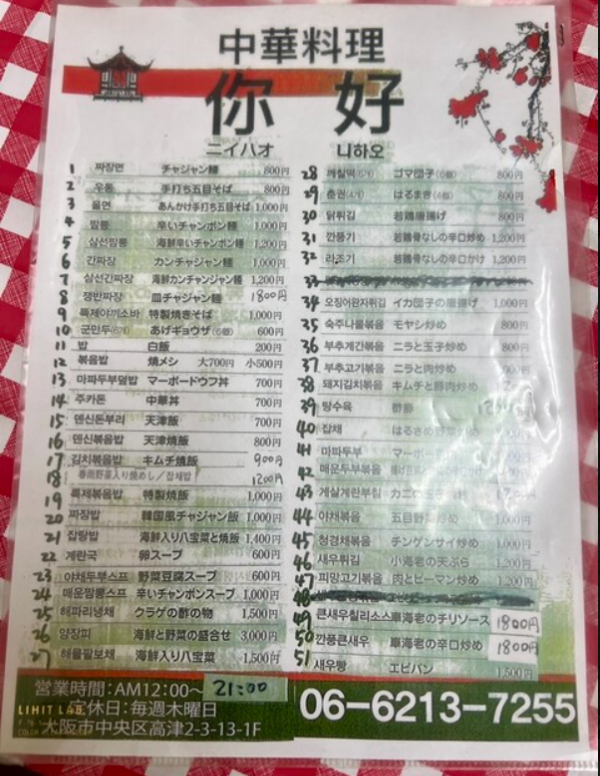 中華料理
你 好
ニイハオ 니하오
1 짜장면 チャジャン麺 800円
2 우동 手打ち五目そば 800円
3 울면 あんかけ手打ち五目そば 1,000円
4 짬뽕 辛いチャンポン麺 1,000円
5 삼선짬뽕 海鮮辛いチャンポン麺 1,200円
6 간짜장 カンチャジャン麺 1,000円
7 삼선간짜장 海鮮カンチャンジャン麺 1,200円
8 쟁반짜장 皿チャジャン麺 1800円
9 특제야끼소바 特製焼きそば 1,000円
10 군만두(6개) あげギョウザ(6個) 600円
11 밥 白飯 200円
12 볶음밥 焼メシ 大700円 小500円
13 마파두부덮밥 マーボードウフ丼 700円
14 주카돈 中華丼 700円
15 덴신돈부리 天津飯 700円
16 덴신볶음밥 天津焼飯 800円
17 김치볶음밥 キムチ焼飯 900円
18 春雨野菜入り焼めし／잡채밥 1200円
19 특제볶음밥 特製焼飯 1,000円
20 짜장밥 韓国風チャジャン飯 1,000円
21 잡탕밥 海鮮入り八宝菜と焼飯 1,400円
22 계란국 卵スープ 600円
23 야채두부스프 野菜豆腐スープ 600円
24 매운짬뽕스프 辛いチャンポンスープ 1,000円
25 해파리냉채 クラゲの酢の物 1,500円
26 양장피 海鮮と野菜の盛合せ 3,000円
27 해물팔보채 海鮮入り八宝菜 1,500円
28 깨살떡(6개) ゴマ団子(6個) 800円
29 춘권(4개) はるまき 800円
30 닭튀김 若鶏唐揚げ 800円
31 깐풍기 若鶏骨なしの辛口炒め 1,200円
32 라조기 若鶏骨なしの辛口かけ 1,200円
33
34 오징어완자튀김 イカ団子の唐揚げ 1,000円
35 숙주나물볶음 モヤシ炒め 800円
36 부추계간볶음 ニラと玉子炒め 800円
37 부추고기볶음 ニラと肉炒め
38 돼지김치볶음 キムチと豚肉炒め
39 탕수육 酢豚
40 잡채 はるさめ野菜
41 마파두부 マーボー
42 매운두부볶음
43 게살계란부침
44 야채볶음 五目野菜炒め
45 청경채볶음 チンゲンサイ炒め 1,000円
46 새우튀김 小海老の天ぷら 1,200円
47 피망고기볶음 肉とピーマン炒め 1,200円
48
49 큰새우칠리소스 車海老のチリソース 1800円
50 깐풍큰새우 車海老の辛口炒め 1800円
51 새우빵 エビパン 1,500円
営業時間：AM12:00～ 21:00
定休日：毎週木曜日
大阪市中央区高津2-3-13-1F
06-6213-7255
LIHIT LAB.